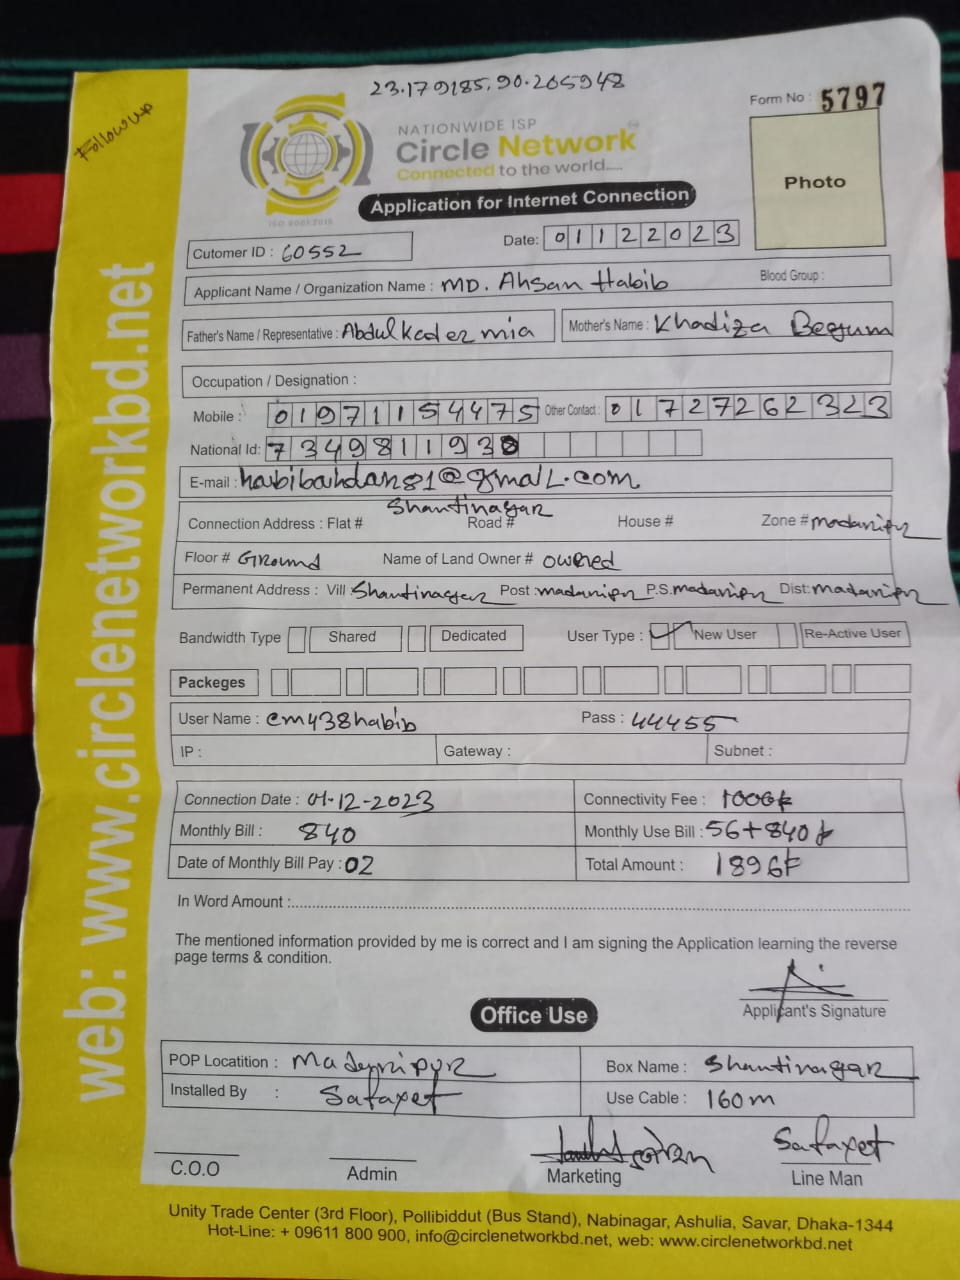 23.179185, 90.205948
Follow up
Form No : 5797
NATIONWIDE ISP
Circle Network
Connected to the world.....
ISO 9001:2015
Photo
Application for Internet Connection
Cutomer ID : 60552
Date: 01122023
Applicant Name / Organization Name : MD. Ahsan Habib Blood Group :
Father's Name / Representative : Abdul kader mia Mother's Name : Khadiza Begum
Occupation / Designation :
Mobile : 01971154475 Other Contact : 01727262323
National Id: 7349811930
E-mail : habibahdan81@gmail.com
Shantinagar
Connection Address : Flat # Road # House # Zone # madaripr
Floor # Ground Name of Land Owner # owened
Permanent Address : Vill Shantinagar Post : madaripr P.S. madaripr Dist: madaripr
Bandwidth Type Shared Dedicated User Type : New User Re-Active User
Packeges
User Name : cm438habib Pass : 44455
IP : Gateway : Subnet :
Connection Date : 01-12-2023 Connectivity Fee : 1000t
Monthly Bill : 840 Monthly Use Bill : 56+840t
Date of Monthly Bill Pay : 02 Total Amount : 1896t
In Word Amount :
The mentioned information provided by me is correct and I am signing the Application learning the reverse
page terms & condition.
Applicant's Signature
Office Use
POP Locatition : Madaripur Box Name : Shantinagar
Installed By : Safayet Use Cable : 160m
Safayet
C.O.O Admin Marketing Line Man
Unity Trade Center (3rd Floor), Pollibiddut (Bus Stand), Nabinagar, Ashulia, Savar, Dhaka-1344
Hot-Line: + 09611 800 900, info@circlenetworkbd.net, web: www.circlenetworkbd.net
web: www.circlenetworkbd.net